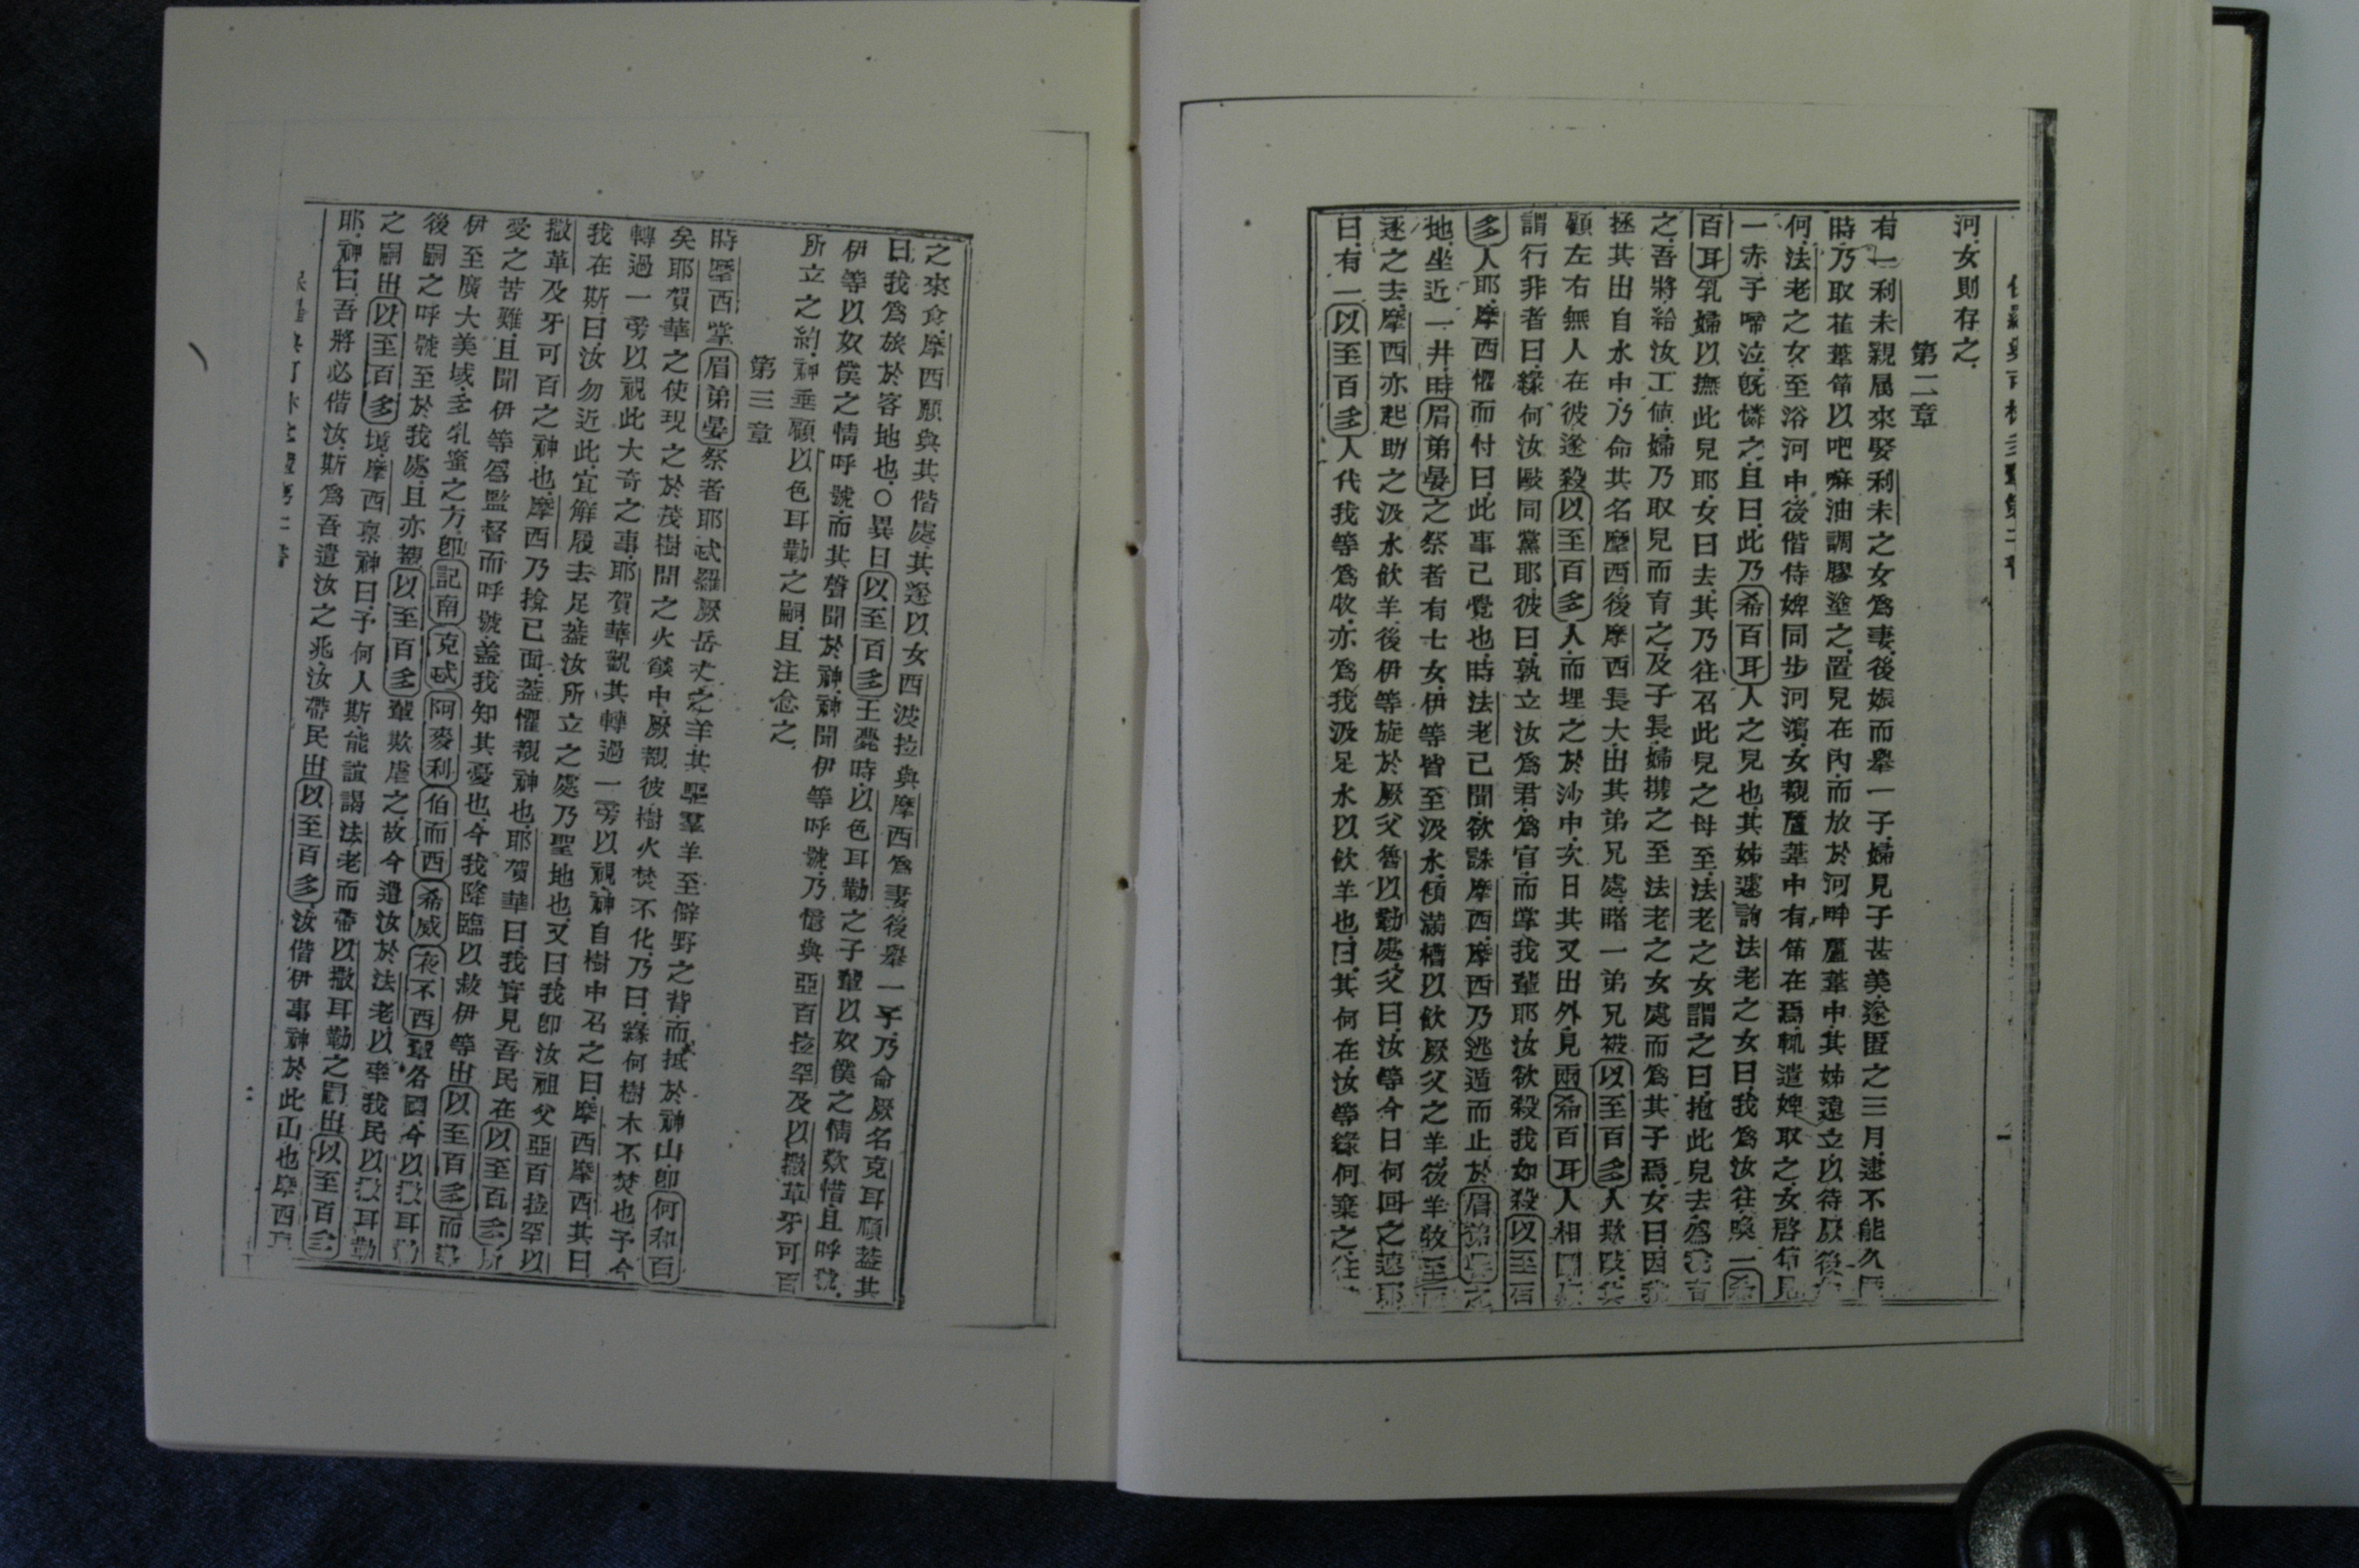 河女則存之
第二章
有一利未親屬來娶利未之女爲妻後娠而舉一子婦見子甚美遂匿之三月逮不能久匿
時乃取萑葦筩以吧嘛油調膠塗之置兒在內而放於河畔蘆葦中其姊遠立以待厥後
何法老之女至浴河中後偕侍婢同步河濱女覩蘆葦中有筩在焉輒遣婢取之女啓筩見
一赤子啼泣旣憐之且曰此乃希百耳人之兒也其姊遽詢法老之女曰我爲汝往喚一希
百耳乳婦以撫此兒耶女曰去其乃往召此兒之母至法老之女謂之曰抱此兒去爲
之吾將給汝工値婦乃取兒而育之及子長婦携之至法老之女處而爲其子焉女曰因我
拯其出自水中乃命其名摩西後摩西長大出其弟兄處睹一弟兄被以至百多人欺
顧左右無人在彼遂殺以至百多人而埋之於沙中次日其又出外見兩希百耳人相鬬
謂行非者曰緣何汝毆同黨耶彼曰孰立汝爲君爲官而掌我輩耶汝欲殺我如殺以至百
多人耶摩西懼而忖曰此事已覺也時法老已聞欲誅摩西摩西乃逃遁而止於眉弟晏之
地坐近一井時眉弟晏之祭者有七女伊等皆至汲水傾滿槽以飲厥父之羊後羊牧至
逐之去摩西亦起助之汲水飲羊後伊等旋於厥父魯以勒處父曰汝等今日何回之速耶
曰有一以至百多人代我等爲牧亦爲我汲足水以飲羊也曰其何在汝等緣何棄之往
之來食摩西願與其偕處其遂以女西波拉與摩西爲妻後舉一子乃命厥名克耳順蓋其
曰我爲旅於客地也○異日以至百多王薨時以色耳勒之子輩以奴僕之情歎惜且呼號
伊等以奴僕之情呼號而其聲聞於神神聞伊等呼號乃憶與亞百拉罕及以撒革牙可百
所立之約神垂顧以色耳勒之嗣且注念之
第三章
時摩西掌眉弟晏祭者耶忒羅厥岳丈之羊其驅羣羊至僻野之背而抵於神山卽何和百
矣耶賀華之使現之於茂樹間之火燄中厥覩彼樹火焚不化乃曰緣何樹木不焚也予今
轉過一旁以視此大奇之事耶賀華觀其轉過一旁以視神自樹中召之曰摩西摩西其曰
我在斯曰汝勿近此宜解履去足蓋汝所立之處乃聖地也又曰我卽汝祖父亞百拉罕以
撒革及牙可百之神也摩西乃揜己面蓋懼覩神也耶賀華曰我實見吾民在以至百多所
受之苦難且聞伊等爲監督而呼號蓋我知其憂也今我降臨以救伊等出以至百多而
伊至廣大美域多乳蜜之方卽記南克忒阿麥利伯而西希威夜不西輩各國今以撒耳勒
後嗣之呼號至於我處且亦覩以至百多輩欺虐之故今遣汝於法老以率我民以撒耳勒
之嗣出以至百多境摩西稟神曰予何人斯能詣謁法老而帶以撒耳勒之嗣出以至百多
耶神曰吾將必偕汝斯爲吾遣汝之兆汝帶民出以至百多汝偕伊事神於此山也摩西
二